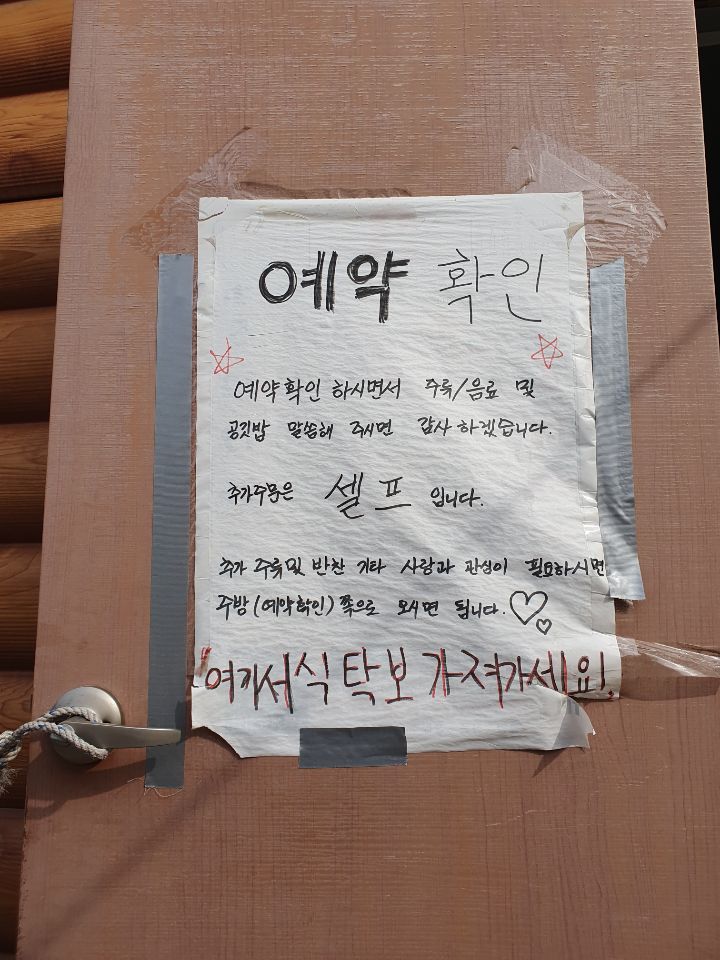 예약 확인
예약확인 하시면서 주류/음료 및
공깃밥 말씀해 주시면 감사하겠습니다.
추가주문은 셀프 입니다.
추가 주류및 반찬 기타 사랑과 관심이 필요하시면
주방(예약확인)쪽으로 오시면 됩니다.
여기서식탁보 가져가세요!